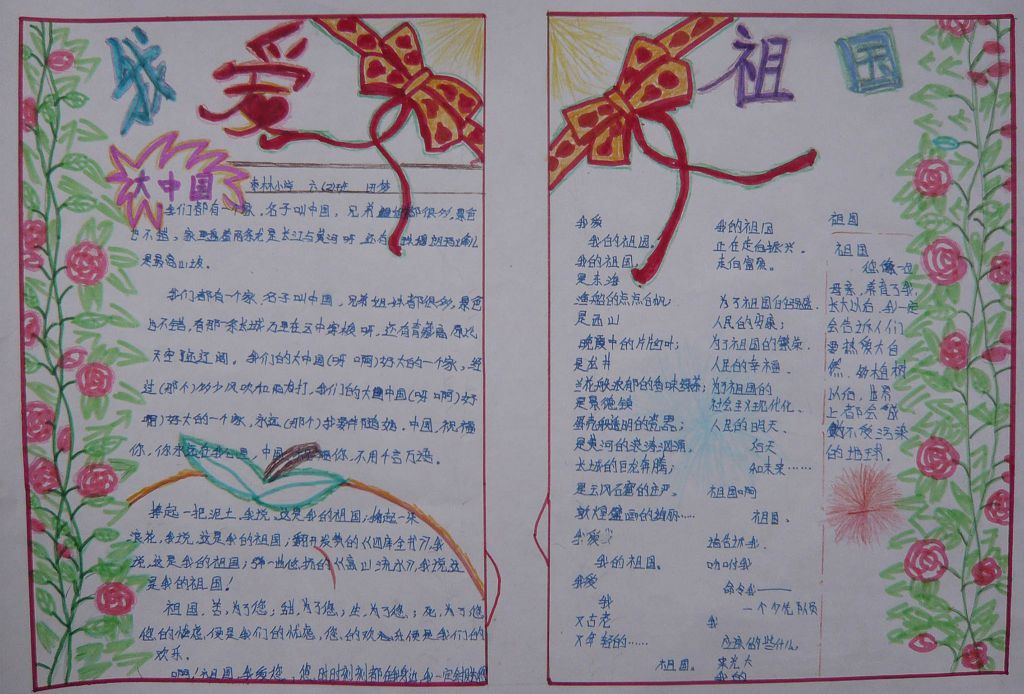 我爱
祖国
大中国
枣林小学 六(2)班 田梦
我们都有一个家,名子叫中国,兄弟姐妹都很多,景色
也不错,家里盘着两条龙是长江与黄河呀,还有珠穆朗玛峰儿
是最高山坡。
我们都有一个家,名子叫中国,兄弟姐妹都很多,景色
也不错,看那一条长城万里在云中穿梭呀,还有青藏高原比
天空还辽阔。我们的大中国(呀 啊)好大的一个家,经
过(那个)多少风吹和雨打,我们的大中国(呀 啊)好
大的一个家,永远(那个)我要伴随她,中国,祝福
你,你永远在我心里,中国 祝福你,不用千言万语。
捧起一把泥土,我说,这是我的祖国;掬起一朵
浪花,我说,这是我的祖国;翻开发黄的《四库全书》,我
说,这是我的祖国;弹一曲低抗的《高山流水》,我说,这
是我的祖国!
祖国,苦,为了您;甜,为了您;生,为了您;死,为了您
您的忧虑,便是我们的忧虑,您的欢乐便是我们的
欢乐。
啊!祖国,我爱您,您时时刻刻都在我身边,我一定
我爱
我的祖国。
我的祖国,
是东海
渔船的点点白帆;
是西山
晚霞中的片片红叶;
是龙井
兰花般浓郁的香味绿茶;
是景德镇
蛋壳般透明的瓷器;
是黄河的滚滚
长城的巨龙奔腾;
是云冈石窟的庄严。
敦煌壁画的绚丽……
我爱
我的祖国。
我爱
我
又古老
又年轻的……
祖国。
我的祖国
正在走向振兴。
走向富强。
为了祖国的强盛
人民的安康;
为了祖国的繁荣
人民的幸福
为了祖国的
社会主义现代化、
人民的明天、
后天
和未来……
祖国啊
祖国、
请告诉我、
吩咐我
命令我——
一个少先队员
我
应该做些什么
祖国
祖国
您像一位
母亲,养育了我,
长大以后,我一定
会告诉人们
要热爱大自
然,多植树
以后,世界
上都会成
为不受污染
的地球。